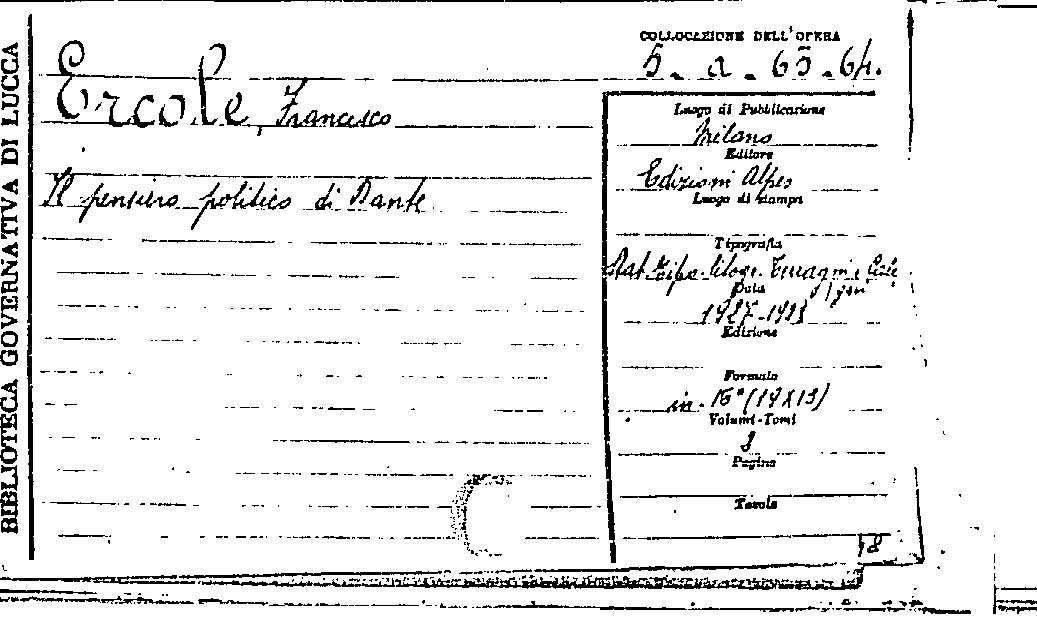 BIBLIOTECA GOVERNATIVA DI LUCCA
COLLOCAZIONE DELL'OPERA
5. a. 65.64.
Ercole, Francesco
Il pensiero politico di Dante
Luogo di Pubblicazione
Milano
Editore
Edizioni Alpes
Luogo di stampa
Tipografia
Stab. Tipo-litogr. Terragni e
Data
1927-1928
Edizione
Formato
in-16° (19X13)
Volumi-Tomi
Pagine
Tavole